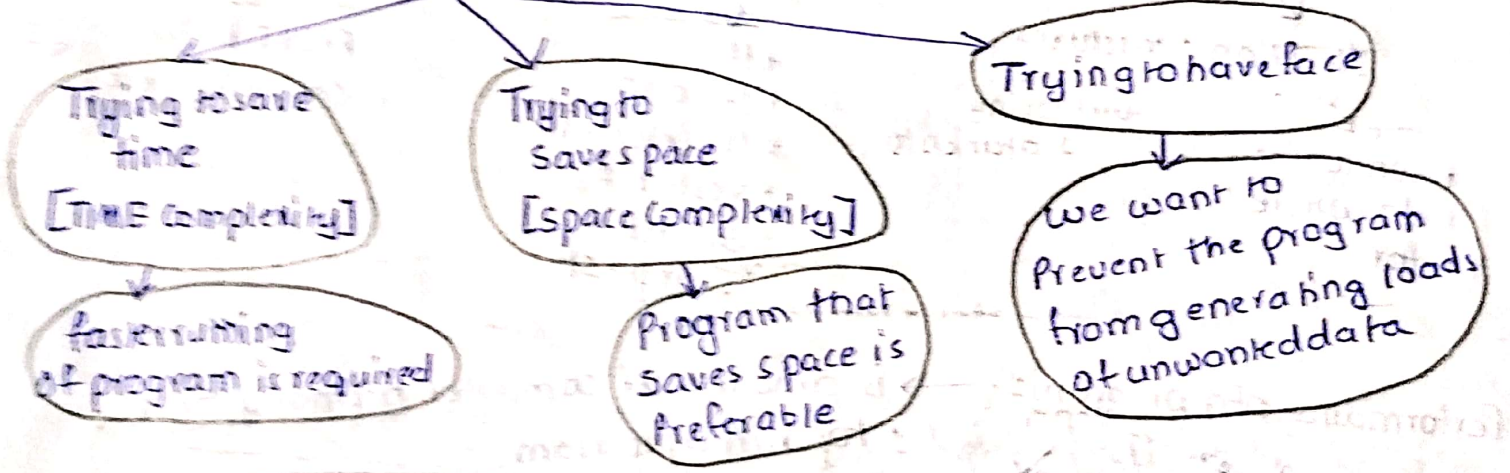 Trying to save
time
[TIME Complexity]
faster running
of program is required
Trying to
save space
[space complexity]
Program that
saves space is
Preferable
Trying to have face
we want to
Prevent the program
from generating loads
of unwanted data